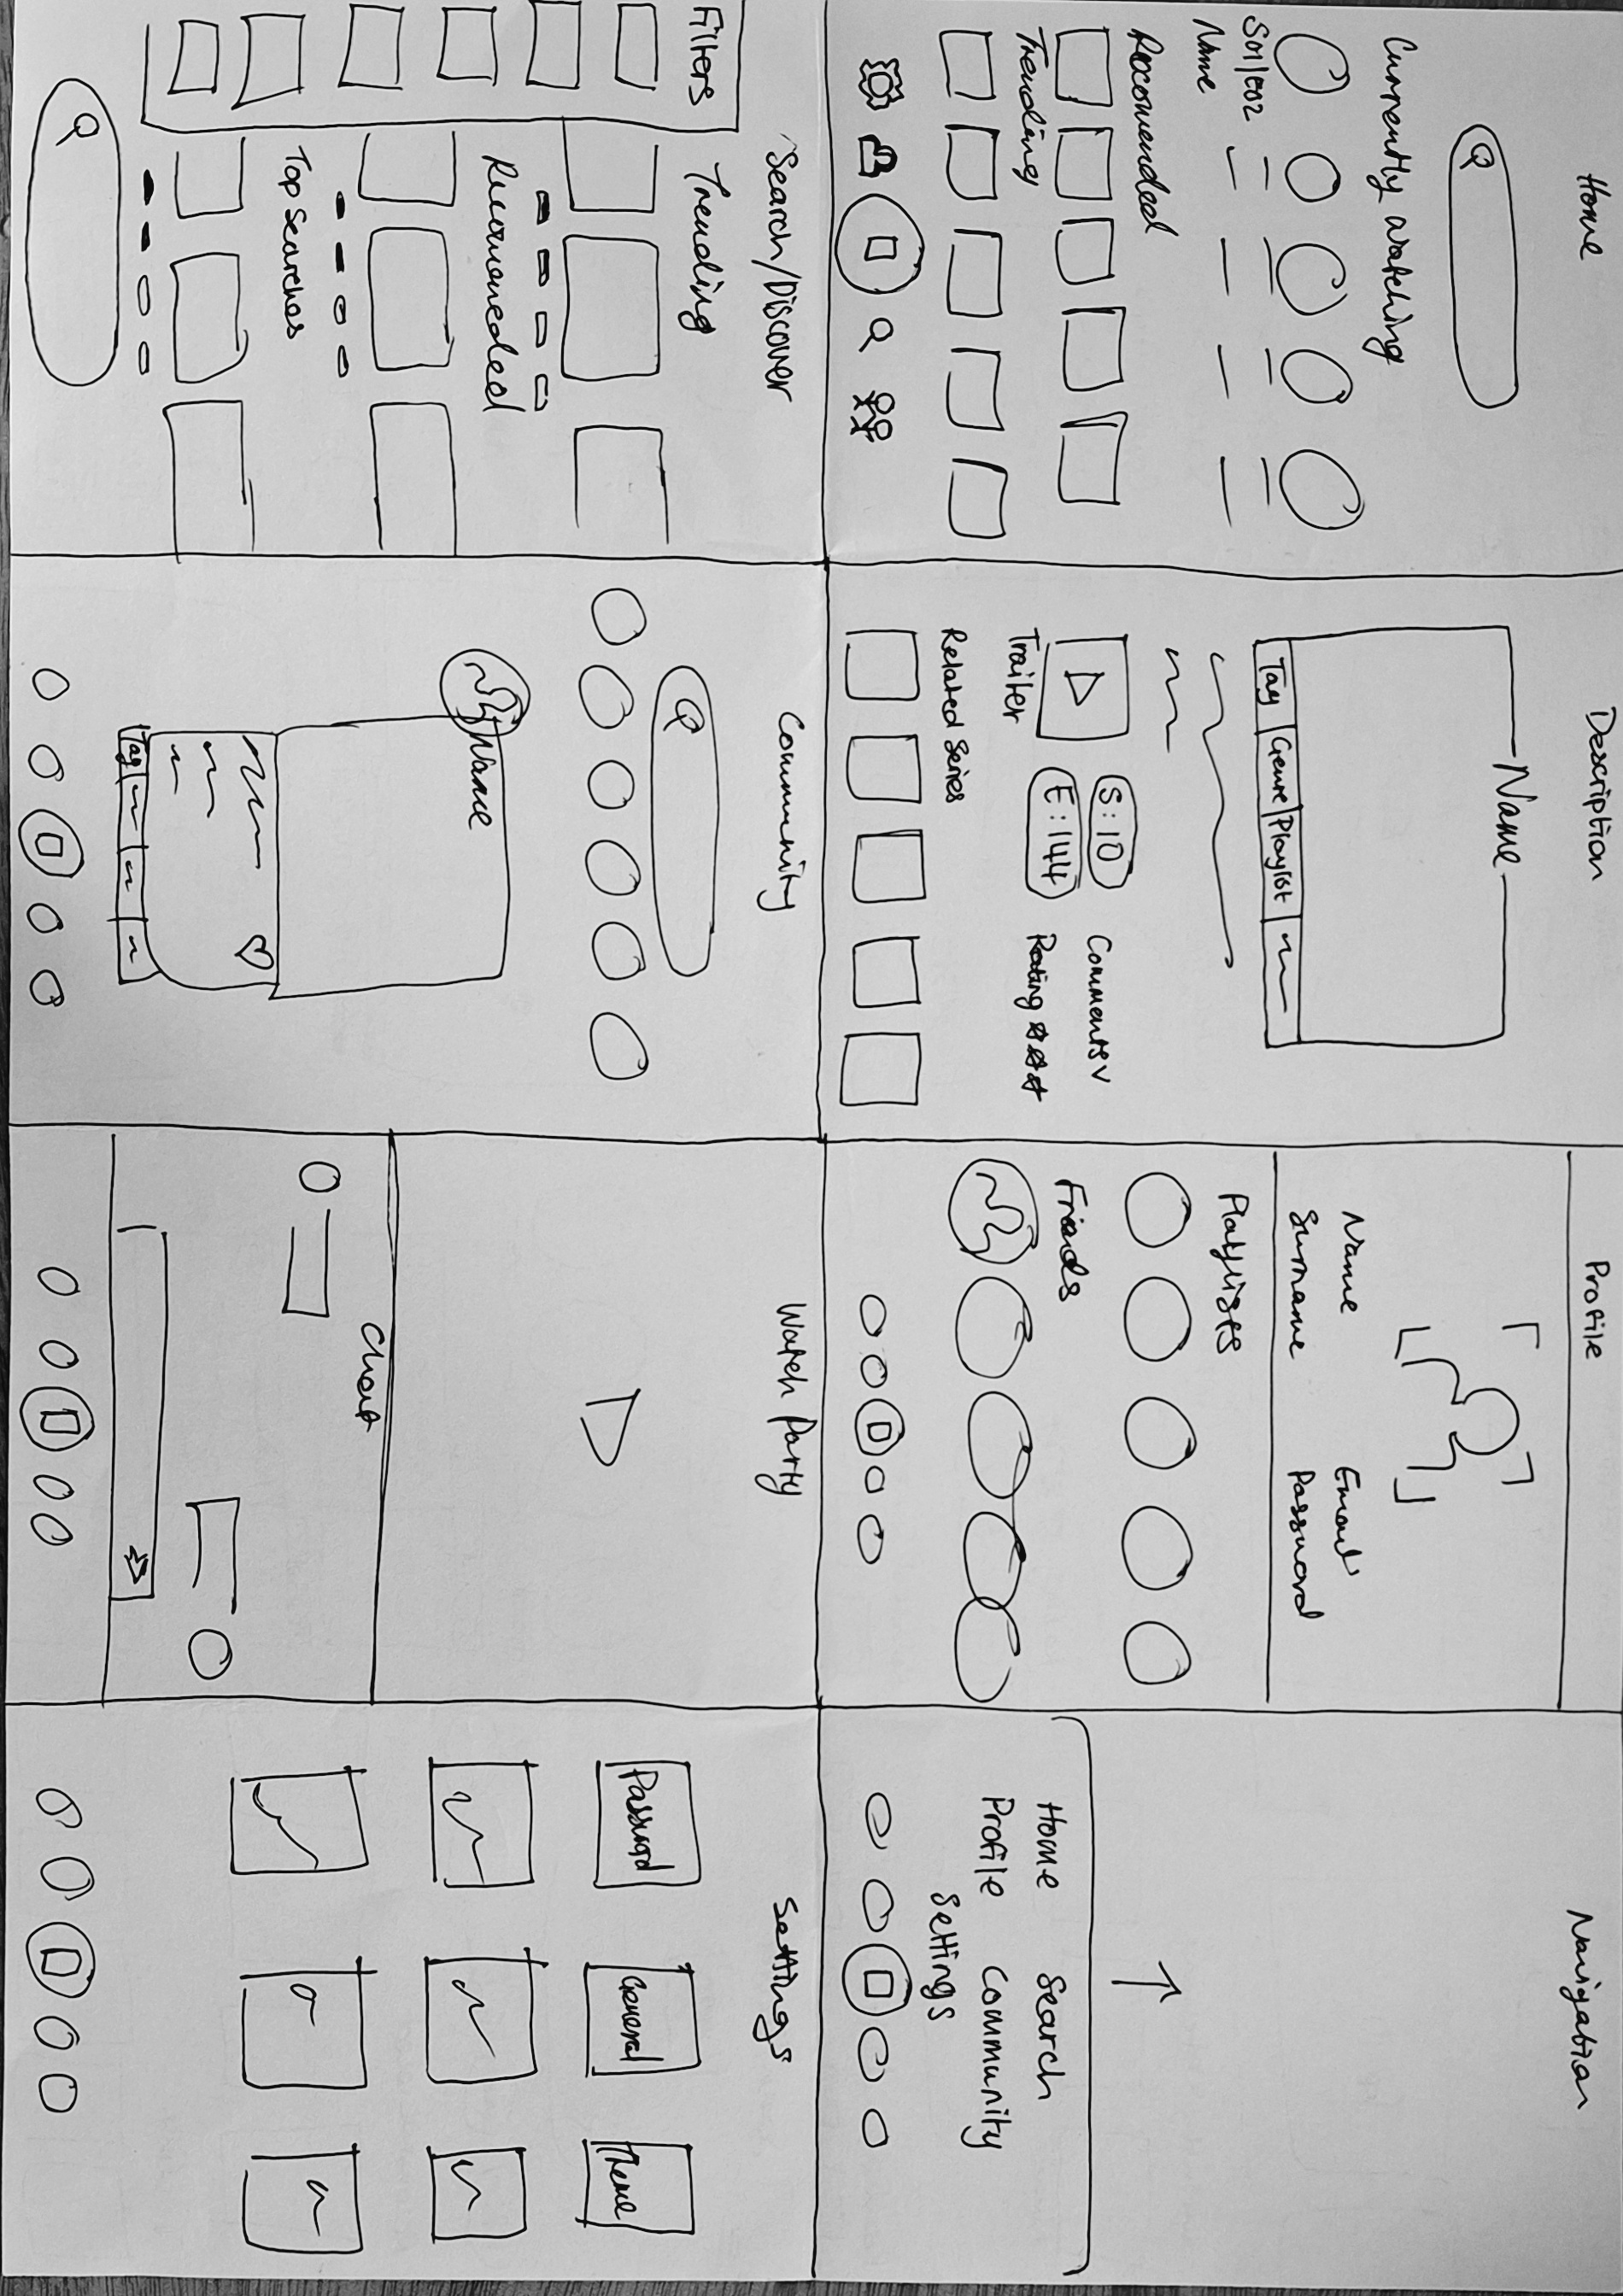 Home
Currently watching
S01/E02
Name
Recomended
Trending
Description
Name
Tag Genre Playlist
S:10
E:144
Comments v
Trailer
Rating
Related Series
Profile
Name
Surname
Email
Password
Playlists
Friends
Navigation
Home Search
Profile Community
Settings
Search/Discover
Filters
Trending
Recomended
Top Searches
Community
Name
Tag
Watch Party
Chat
Settings
Password
General
Theme